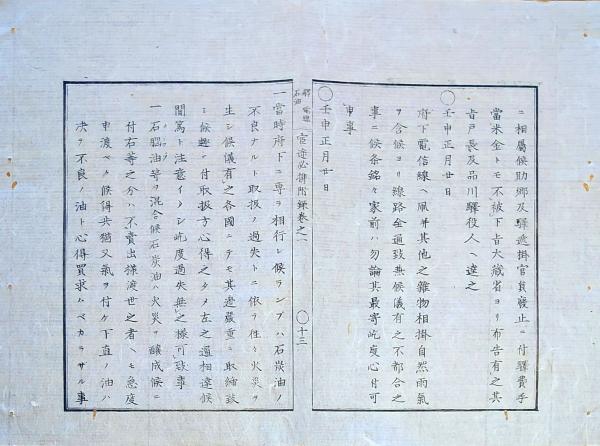 ニ相屬候助郷及驛遞掛官員廢止ニ付驛費手
當米金トモ不被下旨大藏省ヨリ布告有之其
旨戸長及品川驛役人ヘ達之
○壬申正月廿日
府下電信線ヘ凧并其他之雜物相掛自然雨氣
ヲ含候ヨリ線路全通致兼候儀有之不都合之
事ニ候条銘々家前ハ勿論其最寄屹度心付可
申事
○壬申正月廿日
官途必携附録卷之一
○十三
一當時府下ニ專ラ相行レ候ランプハ石炭油ノ
不良ナルト取扱ノ過失トニ依ヲ往々火災ヲ
生シ候儀有之各國ニテモ其邊嚴重ニ取締致
シ候趣ニ付取扱方心得之タメ左之通相達候
間篤ト注意イタシ屹度過失無之様可致事
一石腦油等ヲ混合候石炭油ハ火災ヲ釀成候ニ
付右等之分ハ不賣出様渡世之者ヘモ急度
申渡ベク候得共猶又氣ヲ付ケ下直ノ油ハ
決テ不良ノ油ト心得買求ムベカラザル事